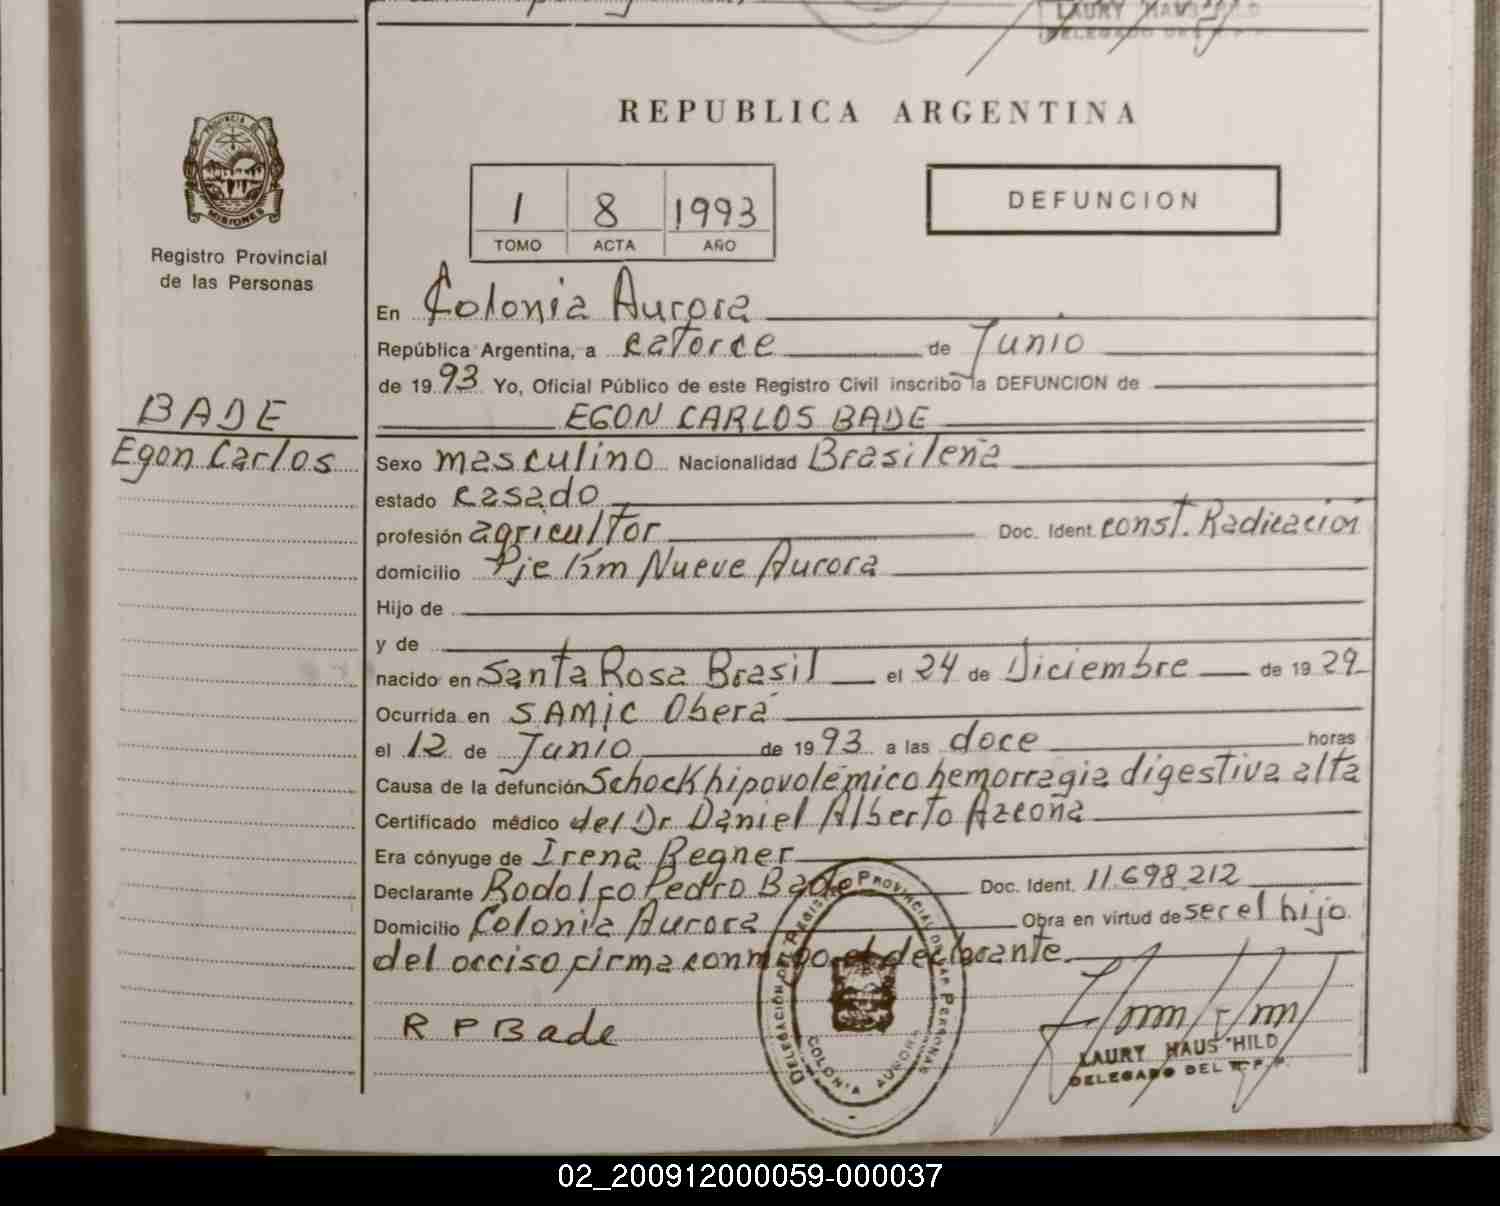 LAURY HAUS HILD
DELEGADO DEL R.P.P.
PROVINCIA DE
MISIONES
Registro Provincial
de las Personas
BADE
Egon Carlos
REPUBLICA ARGENTINA
1 8 1993
TOMO ACTA AÑO
DEFUNCION
En Colonia Aurora
República Argentina, a catorce de Junio
de 1993 Yo, Oficial Público de este Registro Civil inscribo la DEFUNCION de
EGON CARLOS BADE
Sexo masculino Nacionalidad Brasileña
estado casado
profesión agricultor Doc. Ident. const. Radicación
domicilio Pje Km Nueve Aurora
Hijo de
y de
nacido en Santa Rosa Brasil el 24 de Diciembre de 1929
Ocurrida en SAMIC Oberá
el 12 de Junio de 1993 a las doce horas
Causa de la defunción Schock hipovolémico hemorragia digestiva alta
Certificado médico del Dr Daniel Alberto Azcona
Era cónyuge de Irena Regner
Declarante Rodolfo Pedro Bade Doc. Ident. 11.698.212
Domicilio Colonia Aurora Obra en virtud de ser el hijo
del occiso firma conmigo el declarante
R P Bade
DELEGACION DEL REGISTRO PROVINCIAL DE LAS PERSONAS
COLONIA AURORA
LAURY HAUS HILD
DELEGADO DEL R.P.P.
02_200912000059-000037